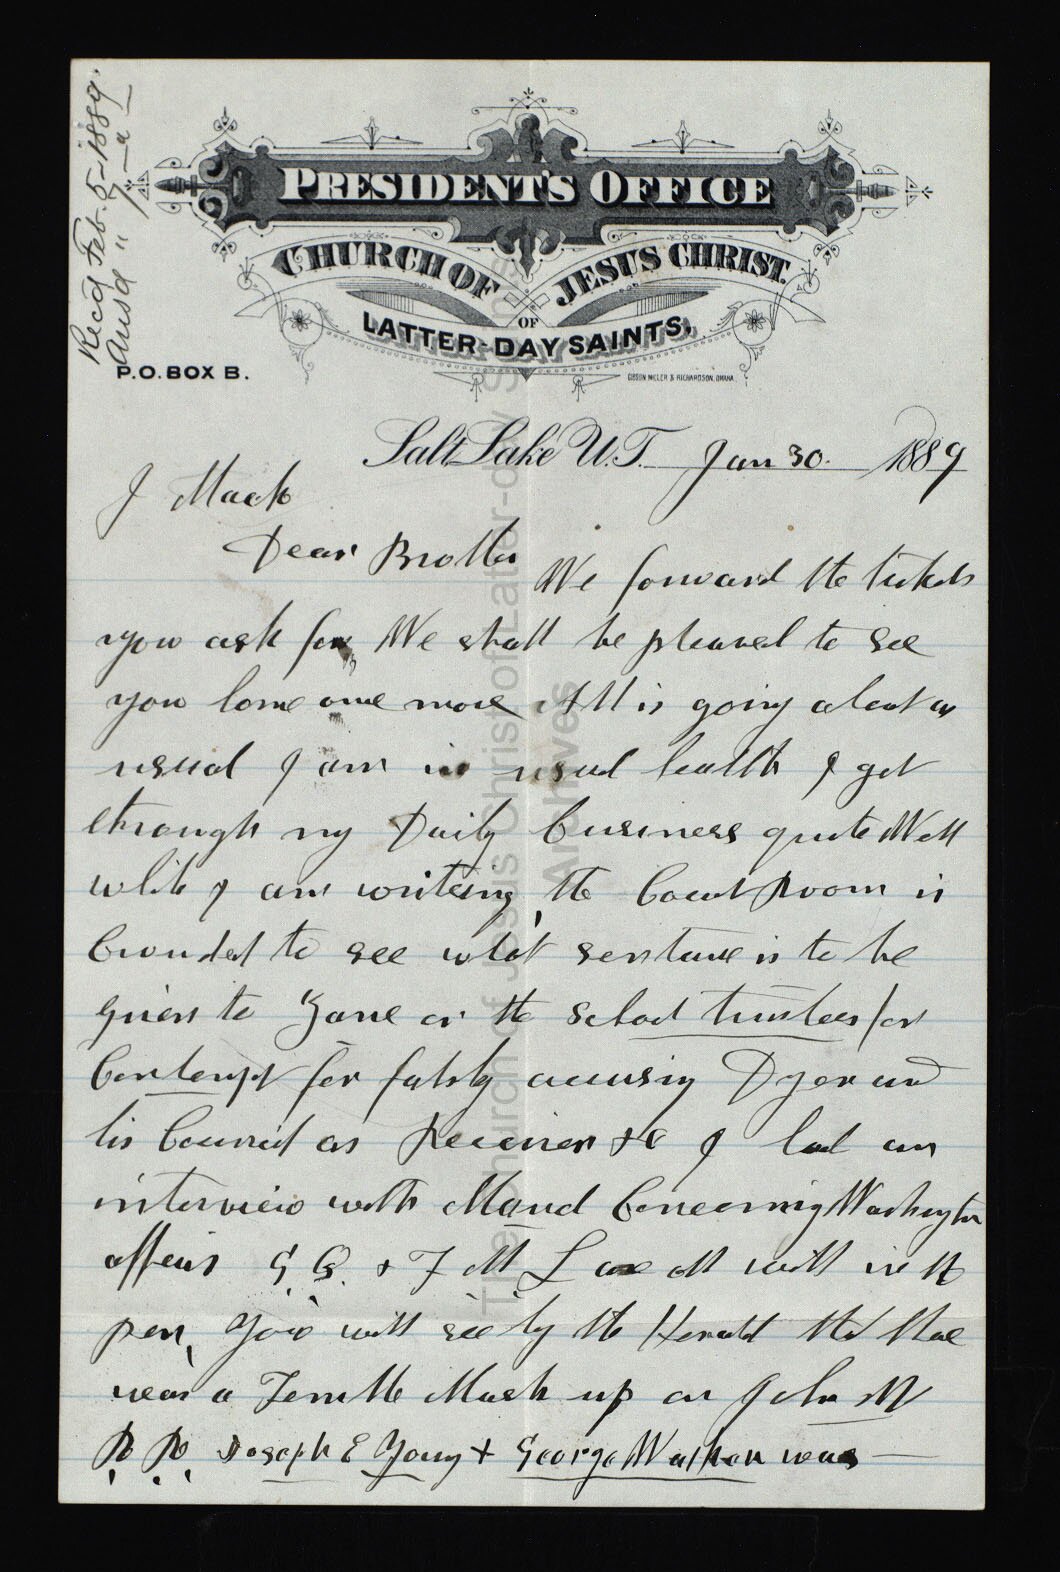 Recd Feb. 5-1889.
Ansd " 7 - " -
PRESIDENT'S OFFICE
CHURCH OF JESUS CHRIST
OF
LATTER-DAY SAINTS.
P.O. BOX B.
GIBSON MILLER & RICHARDSON, OMAHA.
Salt Lake U.T. Jan 30. 1889
J Mack
Dear Brother
We forward the tickets
you ask for We shall be pleased to see
you home one more All is going about as
usual I am in usual health I get
through my Daily business quite Well
while I am writing the Court Room is
Crouded to see what sentance is to be
given to Zane or the School trustees for
Contempt for falsly accusing Dyer and
his Council as Receiver &c I had an
interview with Maud Concerning Washington
affairs G. Q. & F M L are all well in the
pen, You will see by the Herald that thare
was a Terrible Mash up on John W
R R. Joseph E Young & George Walker was
The Church of Jesus Christ of Latter-day Saints
Archives